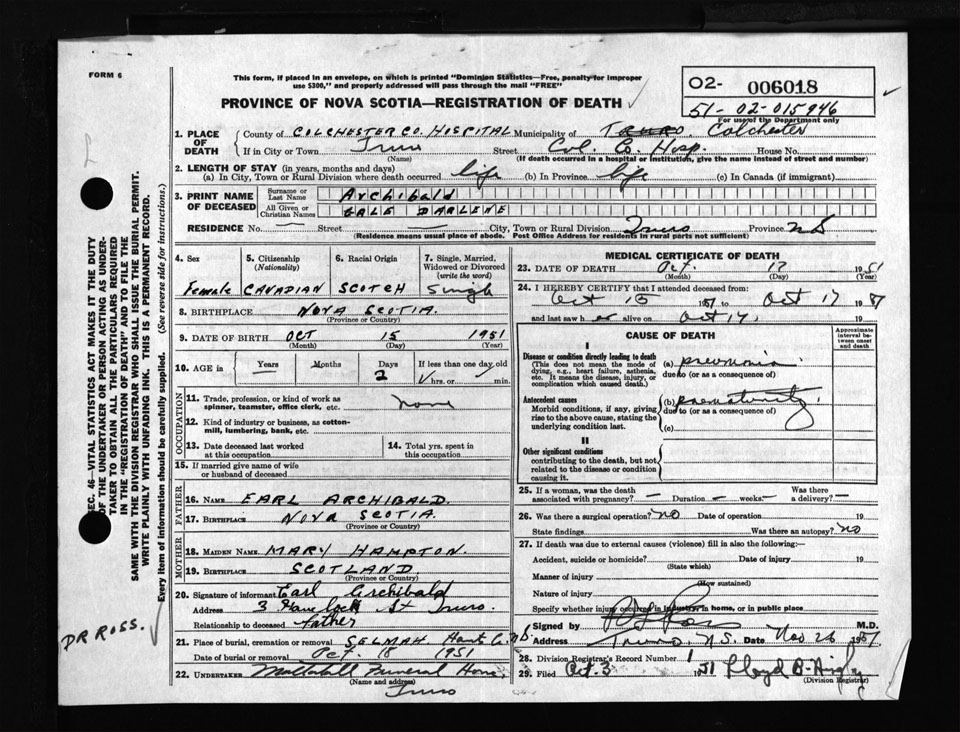 FORM 6
This form, if placed in an envelope, on which is printed "Dominion Statistics—Free, penalty for improper
use $300," and properly addressed will pass through the mail "FREE"
PROVINCE OF NOVA SCOTIA—REGISTRATION OF DEATH
02- 006018
51-02-015946
For use of the Department only
1. PLACE OF DEATH
County of COLCHESTER CO. HOSPITAL Municipality of TRURO. Colchester
If in City or Town Truro Street Col. Co. Hosp. House No.
(Name) (If death occurred in a hospital or institution, give the name instead of street and number)
2. LENGTH OF STAY (in years, months and days)
(a) In City, Town or Rural Division where death occurred life (b) In Province life (c) In Canada (if immigrant)
3. PRINT NAME OF DECEASED
Surname or Last Name Archibald
All Given or Christian Names GALE DARLENE
RESIDENCE No. — Street — City, Town or Rural Division Truro Province N.S
(Residence means usual place of abode. Post Office Address for residents in rural parts not sufficient)
4. Sex Female
5. Citizenship (Nationality) CANADIAN
6. Racial Origin SCOTCH
7. Single, Married, Widowed or Divorced (write the word) Single
8. BIRTHPLACE NOVA SCOTIA.
(Province or Country)
9. DATE OF BIRTH OCT 15 1951
(Month) (Day) (Year)
10. AGE in Years — Months — Days 2 If less than one day old hrs. or min.
OCCUPATION
11. Trade, profession, or kind of work as spinner, teamster, office clerk, etc. none
12. Kind of industry or business, as cotton-mill, lumbering, bank, etc.
13. Date deceased last worked at this occupation
14. Total yrs. spent in this occupation
15. If married give name of wife or husband of deceased
FATHER
16. NAME EARL ARCHIBALD.
17. BIRTHPLACE NOVA SCOTIA.
(Province or Country)
MOTHER
18. MAIDEN NAME MARY HAMPTON.
19. BIRTHPLACE SCOTLAND
(Province or Country)
20. Signature of informant Earl Archibald
Address 3 Havelock St Truro.
Relationship to deceased father
21. Place of burial, cremation or removal SELMAH Hants Co. N.S.
Date of burial or removal Oct. 18 1951
22. UNDERTAKER Mattatall Funeral Home,
(Name and address)
Truro
MEDICAL CERTIFICATE OF DEATH
23. DATE OF DEATH Oct. 17 1951
(Month) (Day) (Year)
24. I HEREBY CERTIFY that I attended deceased from:
Oct 15 1951 to Oct 17 1951
and last saw her alive on Oct 17. 19
CAUSE OF DEATH
Approximate interval between onset and death
I
Disease or condition directly leading to death
(This does not mean the mode of dying, e.g., heart failure, asthenia, etc. It means the disease, injury, or complication which caused death.)
(a) pneumonia
due to (or as a consequence of)
Antecedent causes
Morbid conditions, if any, giving rise to the above cause, stating the underlying condition last.
(b) prematurity.
due to (or as a consequence of)
(c)
II
Other significant conditions
contributing to the death, but not related to the disease or condition causing it.
25. If a woman, was the death associated with pregnancy? — Duration — weeks — Was there a delivery? —
26. Was there a surgical operation? no Date of operation 19
State findings Was there an autopsy? no
27. If death was due to external causes (violence) fill in also the following:—
Accident, suicide or homicide? Date of injury 19
(State which)
Manner of injury
(How sustained)
Nature of injury
Specify whether injury occurred in industry, in home, or in public place
Signed by Ross M.D.
Address Truro N.S. Date Nov 26 1951
28. Division Registrar's Record Number
29. Filed Oct. 3 1951 Lloyd B.
(Division Registrar)
SEC. 46—VITAL STATISTICS ACT MAKES IT THE DUTY
OF THE UNDERTAKER OR PERSON ACTING AS UNDER-
TAKER TO OBTAIN ALL THE PARTICULARS REQUIRED
IN THE "REGISTRATION OF DEATH" AND TO FILE THE
SAME WITH THE DIVISION REGISTRAR WHO SHALL ISSUE THE BURIAL PERMIT.
WRITE PLAINLY WITH UNFADING INK. THIS IS A PERMANENT RECORD.
Every item of information should be carefully supplied. (See reverse side for instructions.)
DR ROSS.